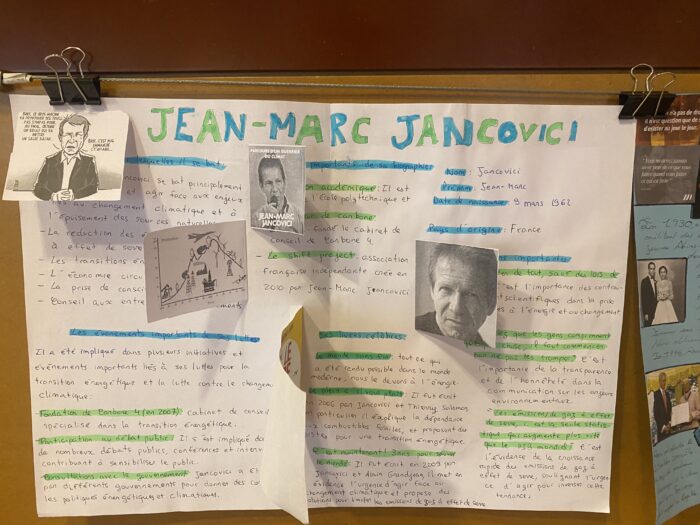 JEAN-MARC JANCOVICI
PARCOURS D'UN GUERRIER
DU CLIMAT
JEAN-MARC
JANCOVICI
se bat principalement
et agir face aux enjeux
au changement climatique et à
l'épuisement des sources naturelles
- La réduction des
à effet de serre
- Les transitions én
- L'économie circu
- La prise de consci
- Conseil aux entre
Les évènements importants de ses luttes
Il a été impliqué dans plusieurs initiatives et
évènements importants liés à ses luttes pour la
transition énergétique et la lutte contre le changeme
climatique:
Fondation de Carbone 4 (en 2007) cabinet de conseil
spécialisé dans la transition énergétique.
Participation au débat public Il s est impliqué da
de nombreux débats publics, conférences et interv
contribuant à sensibiliser le public.
Consultations avec le gouvernement Jancovici a ét
par différents gouvernements pour donner des con
les politiques énergétiques et climatiques.
importants de sa biographie
académique: Il est
l'École polytechnique et
de carbone
fondé le Cabinet de
conseil de Carbone 4
- Le shift project association
Française indépendante créé en
2010 par Jean-Marc Jancovici
Ses livres célèbres:
Le monde sans fin tout ce qui
a été rendu possible dans le monde
moderne, nous le devons à l'énergie.
Le plein s'il vous plait Il fut écrit
2006 par Jancovici et
particulier l'explique la dépendance
aux combustibles fossiles, et proposant des
pour une transition énergétique.
C'est maintenant! 3 ans pour sauver
le monde Il fut écrit en 2009 par
Jancovici et Alain Grandjean, il met en
évidence l'urgence d'agir face au
changement climatique et propose des
solutions pour limiter les émissions de gaz à effet de serre
Nom: Jancovici
Prénom: Jean-Marc
Date de naissance: 9 mars 1962
Pays d'origine: France
importantes
de tout, sauf du
est l'importance des contrain
scientifiques dans la prise
à l'énergie et au changement
que les gens comprennent
il faut commencer
par ne pas les tromper C'est
l'importance de la transparence
et de l'honnêteté dans la
communication sur les enjeux
environnementaux.
- Les émissions de gaz à effet
de serre, est la seule statis
tique qui augmente plus vite
que le C'est
l'évidence de la croissance
rapide des émissions de gaz à
effet de serre, soulignant l'urgence
d'agir pour inverser cette
tendance.
En 1930